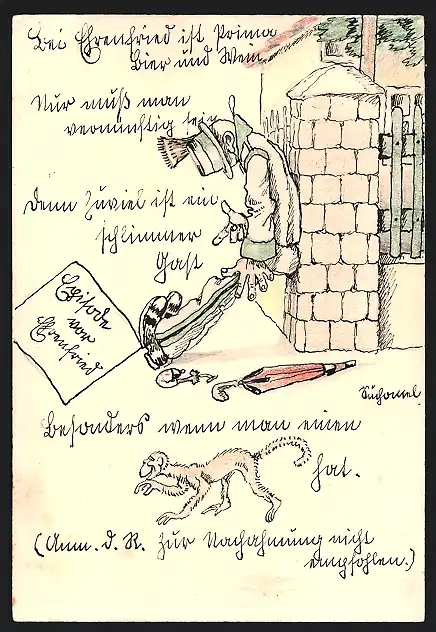 Bei Ehrenfried ist Prima
Bier und Wein
Nur muß man
vernünftig sein
Denn Zuviel ist ein
schlimmer
Gast
Episode
von
Ehrenfried
Suchomel
Besonders wenn man einen
hat.
(Anm. d. R. zur Nachahmung nicht
empfohlen.)